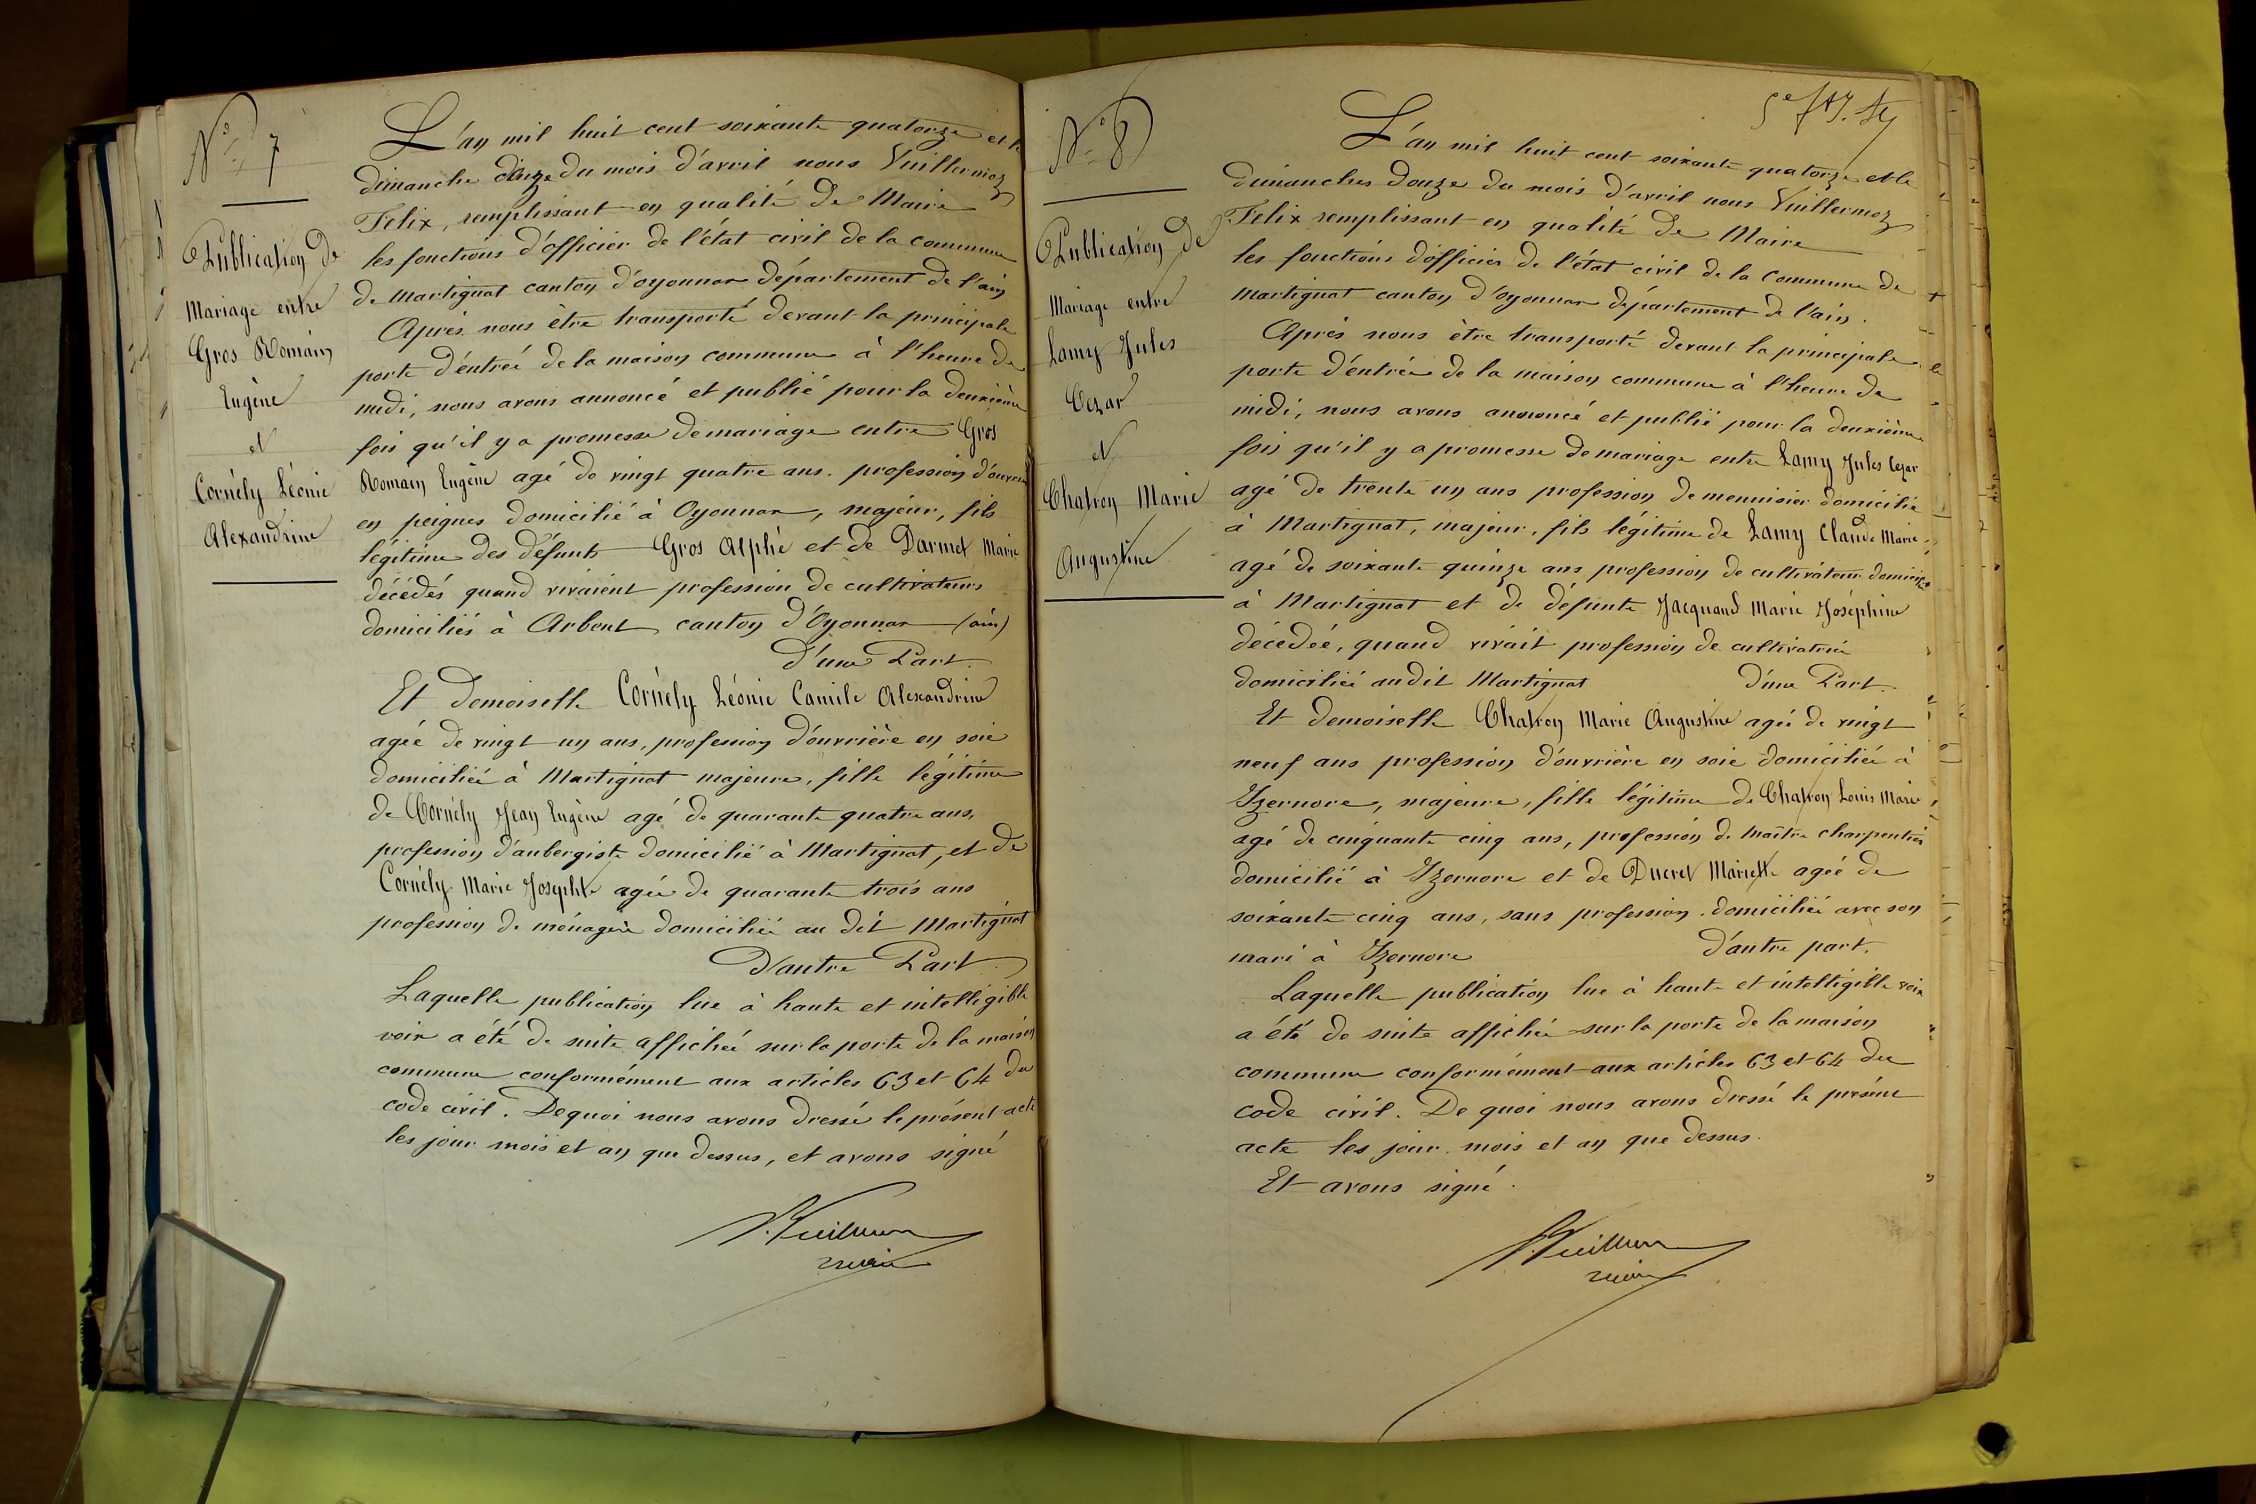 N° 7
Publication de
Mariage entre
Gros Romain
Eugène
et
Cornély Léonie
Alexandrine
L'an mil huit cent soixante quatorze et le
dimanche douze du mois d'avril nous Vuillermoz
Felix, remplissant en qualité de Maire
les fonctions d'officier de l'état civil de la commune
de Martignat canton d'oyonnax département de l'ain
Après nous être transporté devant la principale
porte d'entrée de la maison commune à l'heure de
midi, nous avons annoncé et publié pour la deuxième
fois qu'il y a promesse de mariage entre Gros
Romain Eugène agé de vingt quatre ans. profession d'ouvrier
en peignes domicilié à Oyonnax, majeur, fils
légitime des défunts Gros Alphé et de Darmet Marie
décédés quand vivaient profession de cultivateurs
domiciliés à Arbent canton d'Oyonnax (ain)
d'une Part.
Et demoiselle Cornély Léonie Camile Alexandrine
agée de vingt un ans, profession d'ouvrière en soie
domiciliée à Martignat majeure, fille légitime
de Cornély Jean Eugène agé de quarante quatre ans,
profession d'aubergiste domicilié à Martignat, et de
Cornély Marie Josephte agée de quarante trois ans
profession de ménagère domiciliée au dit Martignat
D'autre Part.
Laquelle publication lue à haute et intelligible
voix a été de suite affichée sur la porte de la maison
commune conformément aux articles 63 et 64 du
code civil. De quoi nous avons dressé le présent acte
les jour mois et an que dessus, et avons signé
maire
N° 8
Publication de
Mariage entre
Lamy Jules
Cezar
et
Chatron Marie
Augustine
L'an mil huit cent soixante quatorze et le
dimanches douze du mois d'avril nous Vuillermoz
Felix remplissant en qualité de Maire
les fonctions d'officier de l'état civil de la Commune de
Martignat canton d'oyonnax département de l'ain.
Après nous être transporté devant la principale
porte d'entrée de la maison commune à l'heure de
midi, nous avons annoncé et publié pour la deuxième
fois qu'il y a promesse de mariage entre Lamy Jules Cezar
agé de trente un ans profession de menuisier domicilié
à Martignat, majeur, fils légitime de Lamy Claude Marie
agé de soixante quinze ans profession de cultivateur domicilié
à Martignat et de défunte Jacquand Marie Joséphine
décédée, quand vivait profession de cultivatrice
domiciliée audit Martignat d'une Part.
Et demoiselle Chatron Marie Augustine agée de vingt
neuf ans profession d'ouvrière en soie domiciliée à
Izernore, majeure, fille légitime de Chatron Louis Marie
agé de cinquante cinq ans, profession de maître charpentier
domicilié à Izernore et de Ducret Mariette agée de
soixante cinq ans, sans profession. domiciliée avec son
mari à Izernore d'autre part.
Laquelle publication lue à haute et intelligible voix
a été de suite affichée sur la porte de la maison
commune conformément aux articles 63 et 64 du
code civil. De quoi nous avons dressé le présent
acte les jour mois et an que dessus.
Et avons signé.
maire